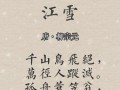 江雪
唐·柳宗元
千山鳥飛絕，
萬徑人蹤滅。
孤舟蓑笠翁，